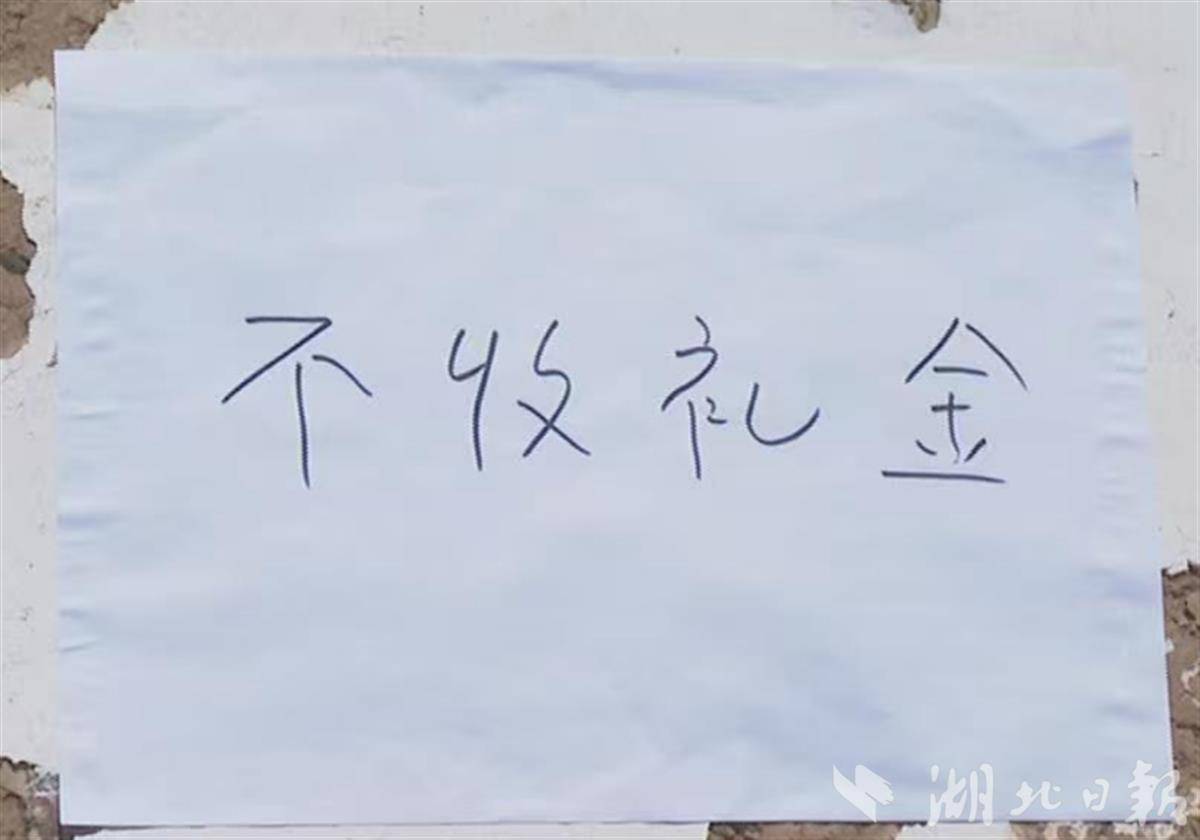 不收礼金
湖北日报